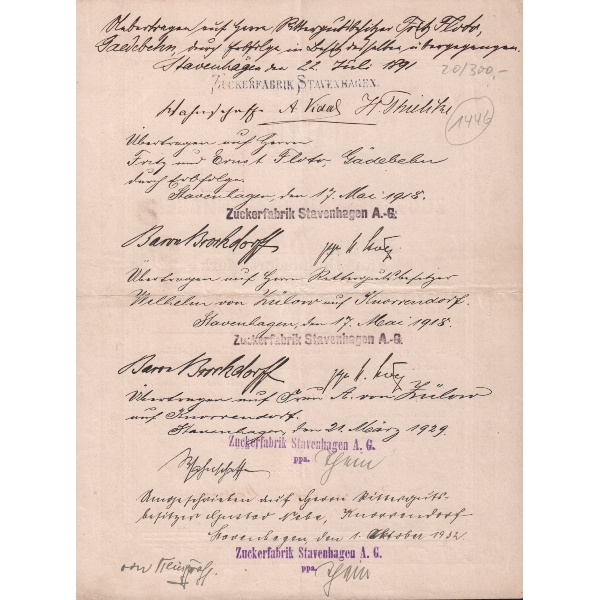 Uebertragen auf Herrn Rittergutsbesitzer Fritz Floto,
Gaedebehn, durch Erbfolge in Besitz desselben übergegangen.
Stavenhagen den 22. Juli 1891
20/300,-
ZUCKERFABRIK STAVENHAGEN.
Wahnschaffe A. H. Thielike
1446
Übertragen auf Herrn
Fritz und Ernst Floto, Gädebehn
durch Erbfolge.
Stavenhagen, den 17. Mai 1918.
Zuckerfabrik Stavenhagen A.-G.
Baron Brockdorff ppa.
Übertragen auf Herrn Rittergutsbesitzer
Wilhelm von Zülow auf Knorrendorf.
Stavenhagen, den 17. Mai 1918.
Zuckerfabrik Stavenhagen A.-G.
Baron Brockdorff ppa.
Übertragen auf Frau A. von Zülow
auf Knorrendorf.
Stavenhagen, den 21. März 1929.
Zuckerfabrik Stavenhagen A. G.
Wahnschaffe ppa. Thein
Umgeschrieben auf Herrn Ritterguts-
besitzer Gustav Knorrendorf
Stavenhagen, den 1. Oktober 1932.
Zuckerfabrik Stavenhagen A. G.
von ppa. Thein